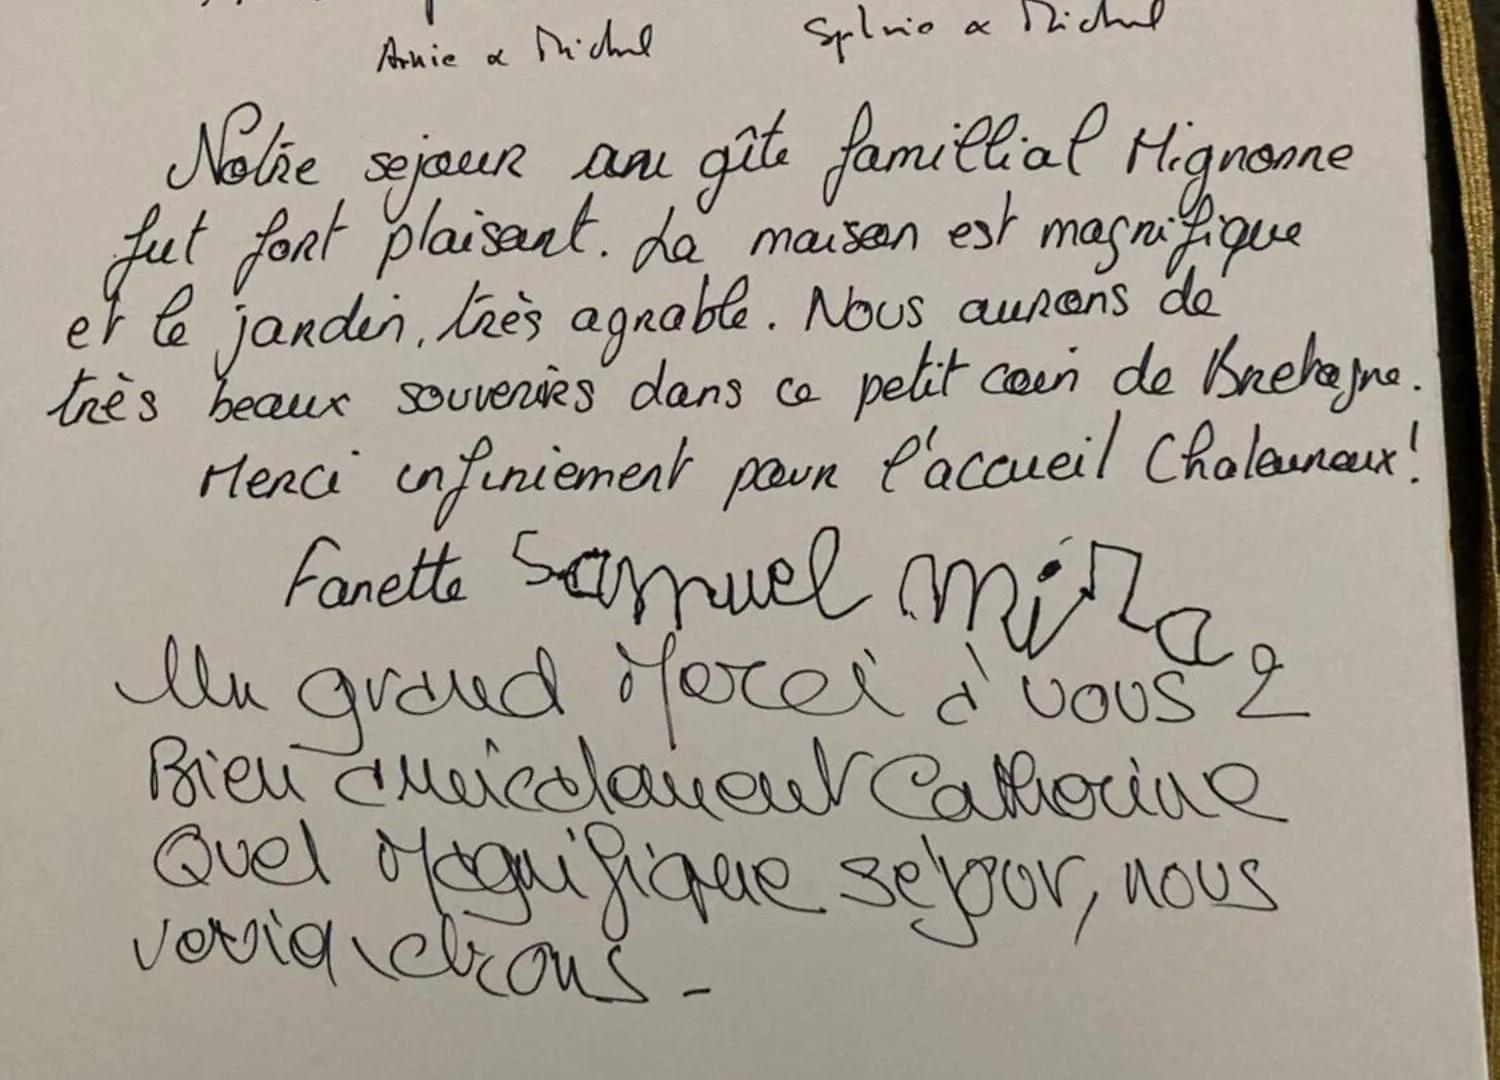 Annie & Michel
Sylvie & Michel
Notre sejour au gîte famillial Mignonne
fut fort plaisant. La maison est magnifique
et le jardin, très agrable. Nous aurons de
très beaux souvenirs dans ce petit coin de Bretagne.
Merci infiniement pour l'accueil Chaleureux!
Fanette Samuel mina
Un grand Merci à vous 2
Bien amicalement Catherine
Quel Magnifique séjour, nous
reviendrons.-